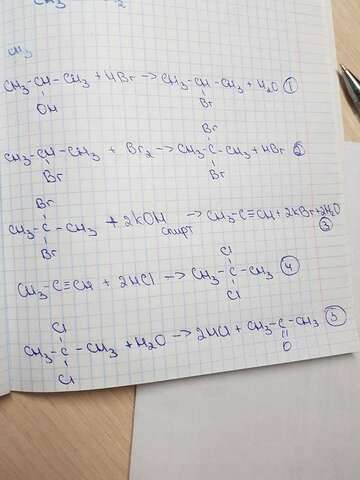 CH₃
CH₃-CH-CH₃ + HBr → CH₃-CH-CH₃ + H₂O ①
OH Br
Br
CH₃-CH-CH₃ + Br₂ → CH₃-C-CH₃ + HBr ②
Br Br
Br
CH₃-C-CH₃ + 2KOH → CH₃-C≡CH + 2KBr + 2H₂O
Br спирт ③
Cl
CH₃-C≡CH + 2HCl → CH₃-C-CH₃ ④
Cl
Cl
CH₃-C-CH₃ + H₂O → 2HCl + CH₃-C-CH₃ ⑤
Cl O